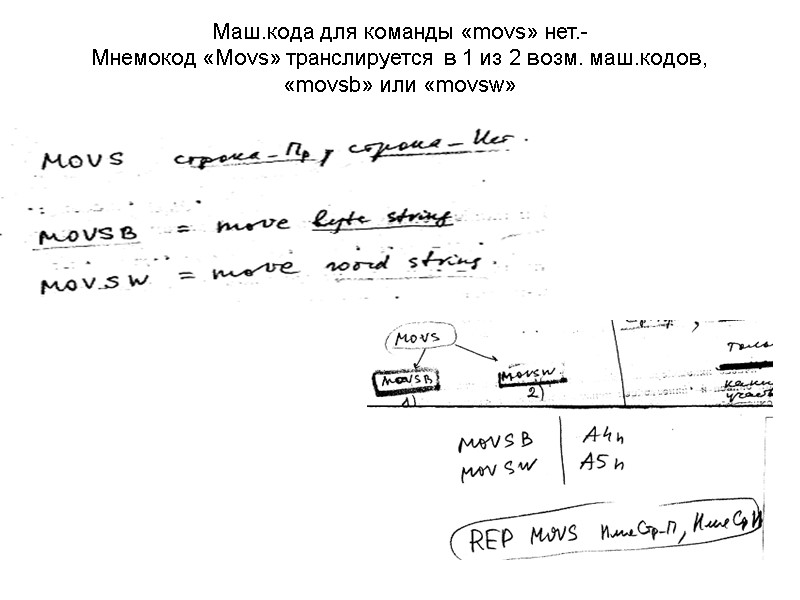 Маш.кода для команды «movs» нет.-
Мнемокод «Movs» транслируется в 1 из 2 возм. маш.кодов,
«movsb» или «movsw»
MOVS строка-Пр, строка-Ист.
MOVSB = move byte string
MOVSW = move word string.
MOVS
MOVSB MOVSW
1) 2)
MOVSB A4h
MOVSW A5h
REP MOVS ИмяСтр-П, ИмяСтрИ